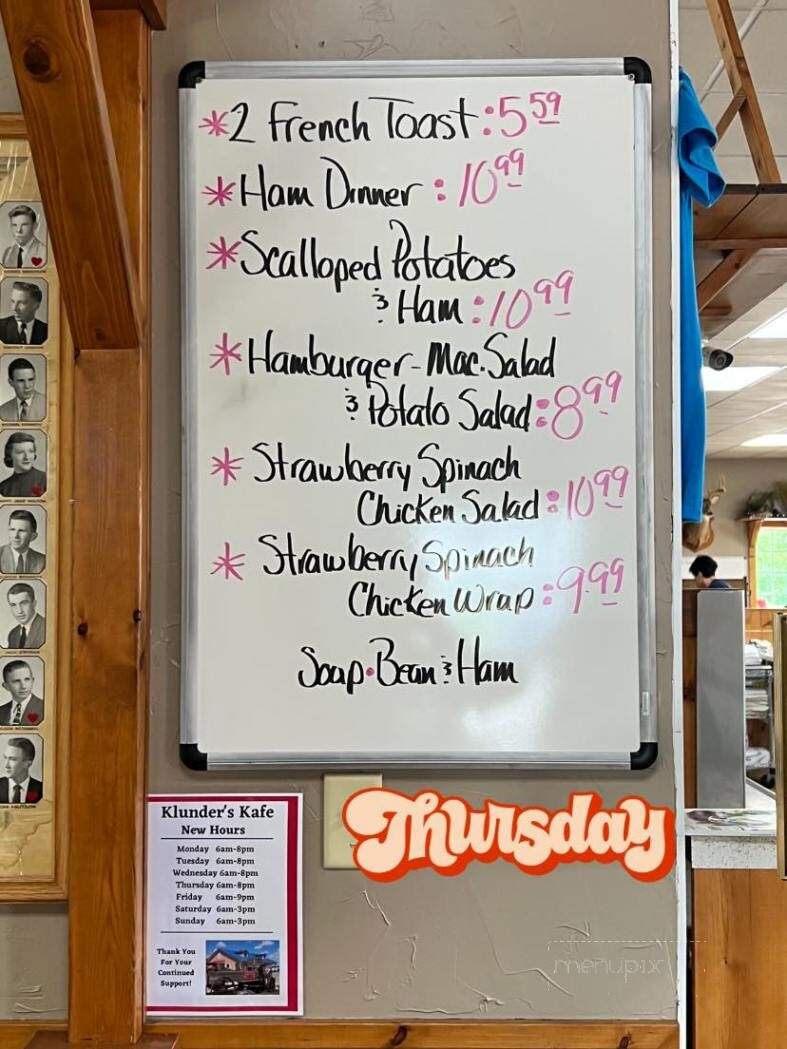 *2 French Toast:5 59
*Ham Dinner:10 99
*Scalloped Potatoes
& Ham:10 99
*Hamburger-Mac.Salad
& Potato Salad:8 99
*Strawberry Spinach
Chicken Salad:10 99
*Strawberry Spinach
Chicken Wrap:9.99
Soup•Bean & Ham
Thursday
Klunder's Kafe
New Hours
Monday 6am-8pm
Tuesday 6am-8pm
Wednesday 6am-8pm
Thursday 6am-8pm
Friday 6am-9pm
Saturday 6am-3pm
Sunday 6am-3pm
Thank You
For Your
Continued
Support!
menupix